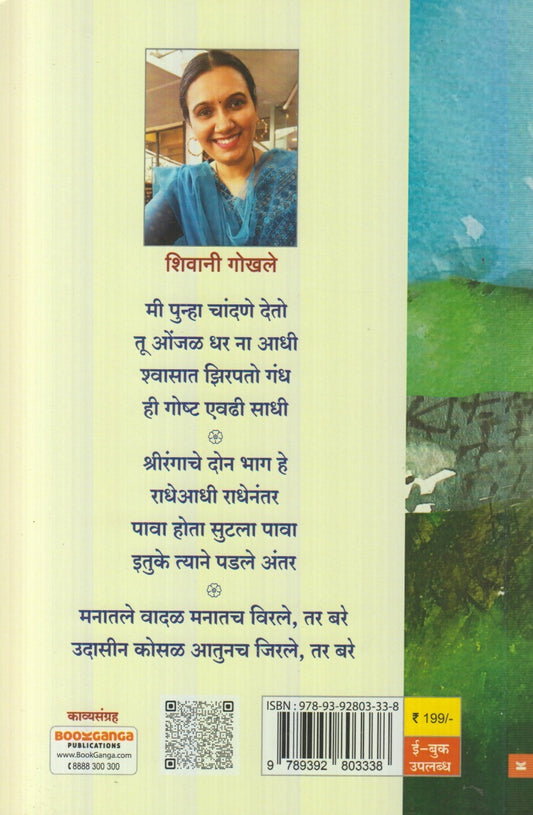 शिवानी गोखले
मी पुन्हा चांदणे देतो
तू ओंजळ धर ना आधी
श्वासात झिरपतो गंध
ही गोष्ट एवढी साधी
श्रीरंगाचे दोन भाग हे
राधेआधी राधेनंतर
पावा होता सुटला पावा
इतुके त्याने पडले अंतर
मनातले वादळ मनातच विरले, तर बरे
उदासीन कोसळ आतुनच जिरले, तर बरे
काव्यसंग्रह
BOOKGANGA
PUBLICATIONS
www.BookGanga.com
8888 300 300
ISBN : 978-93-92803-33-8
9 789392 803338
₹ 199/-
ई-बुक
उपलब्ध
K